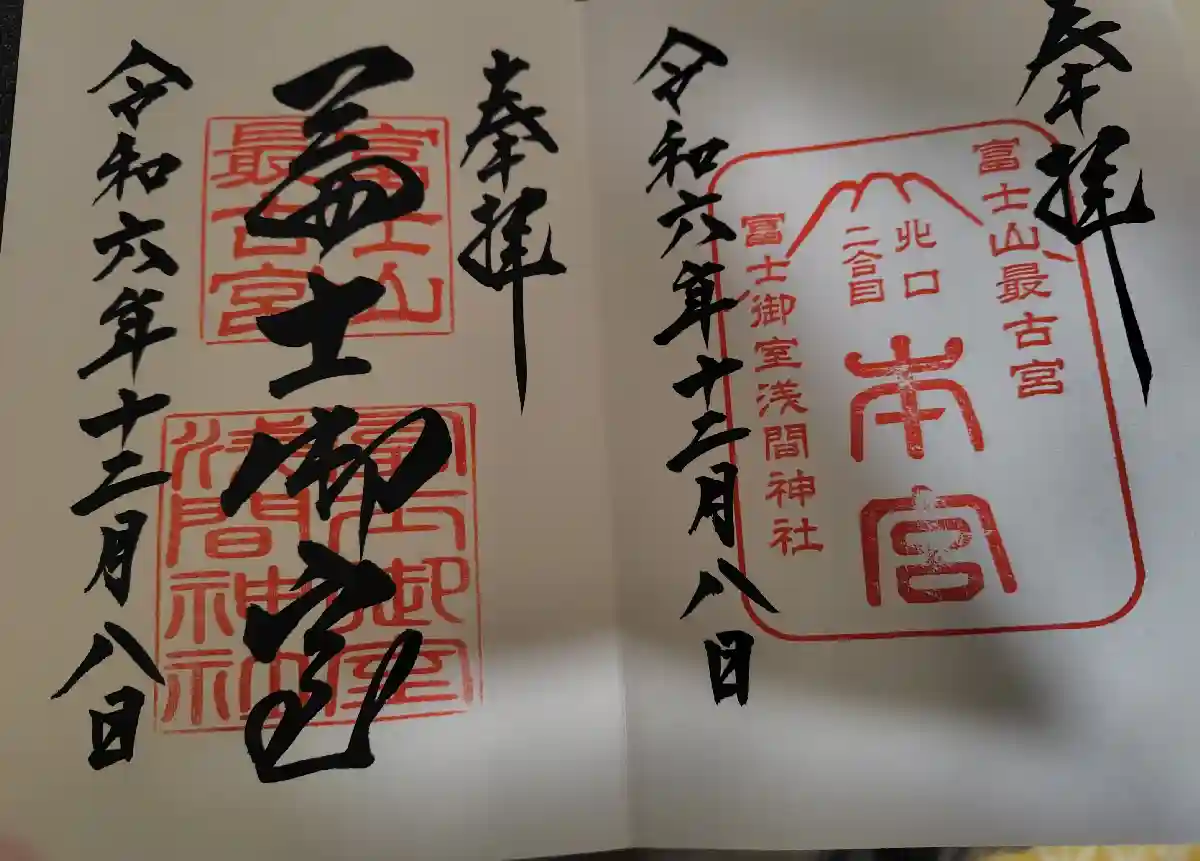 奉拝
富士山最古宮
北口
二合目
本宮
富士御室浅間神社
令和六年十二月八日
奉拝
富士山
最古宮
富士御室
富士御室
浅間神社
令和六年十二月八日